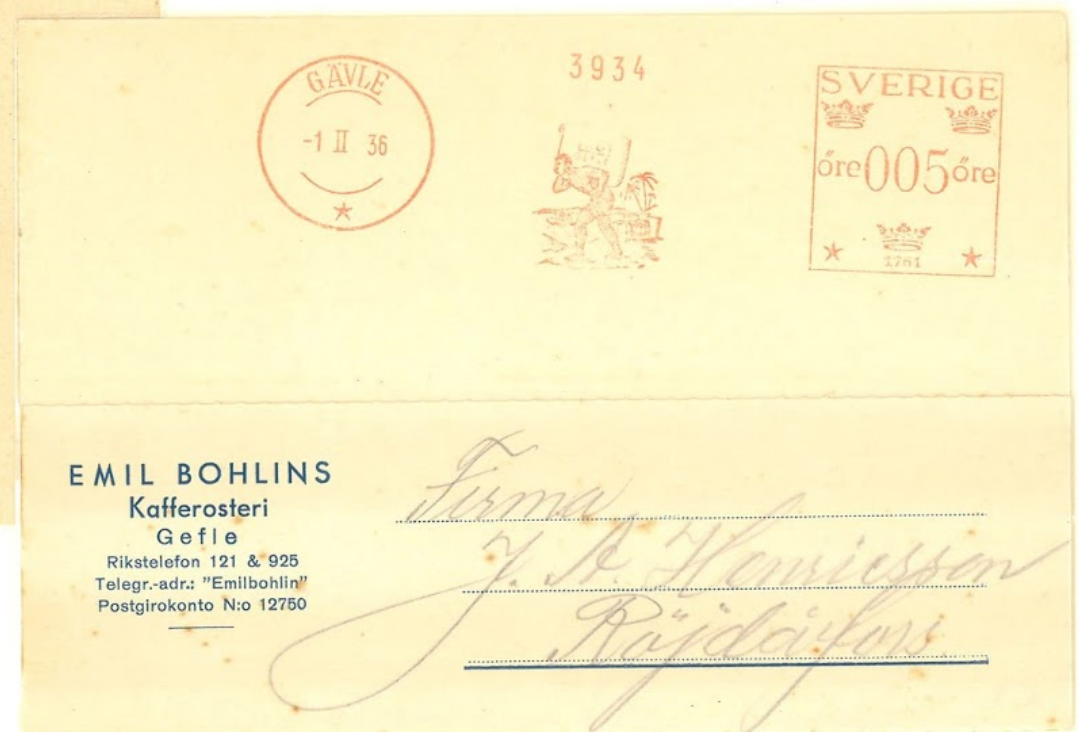 GÄVLE
-1 II 36
3934
SVERIGE
öre 005 öre
1761
EMIL BOHLINS
Kafferosteri
Gefle
Rikstelefon 121 & 925
Telegr.-adr.: "Emilbohlin"
Postgirokonto N:o 12750
Firma
J. A. Henricsson
Röjdåfors.